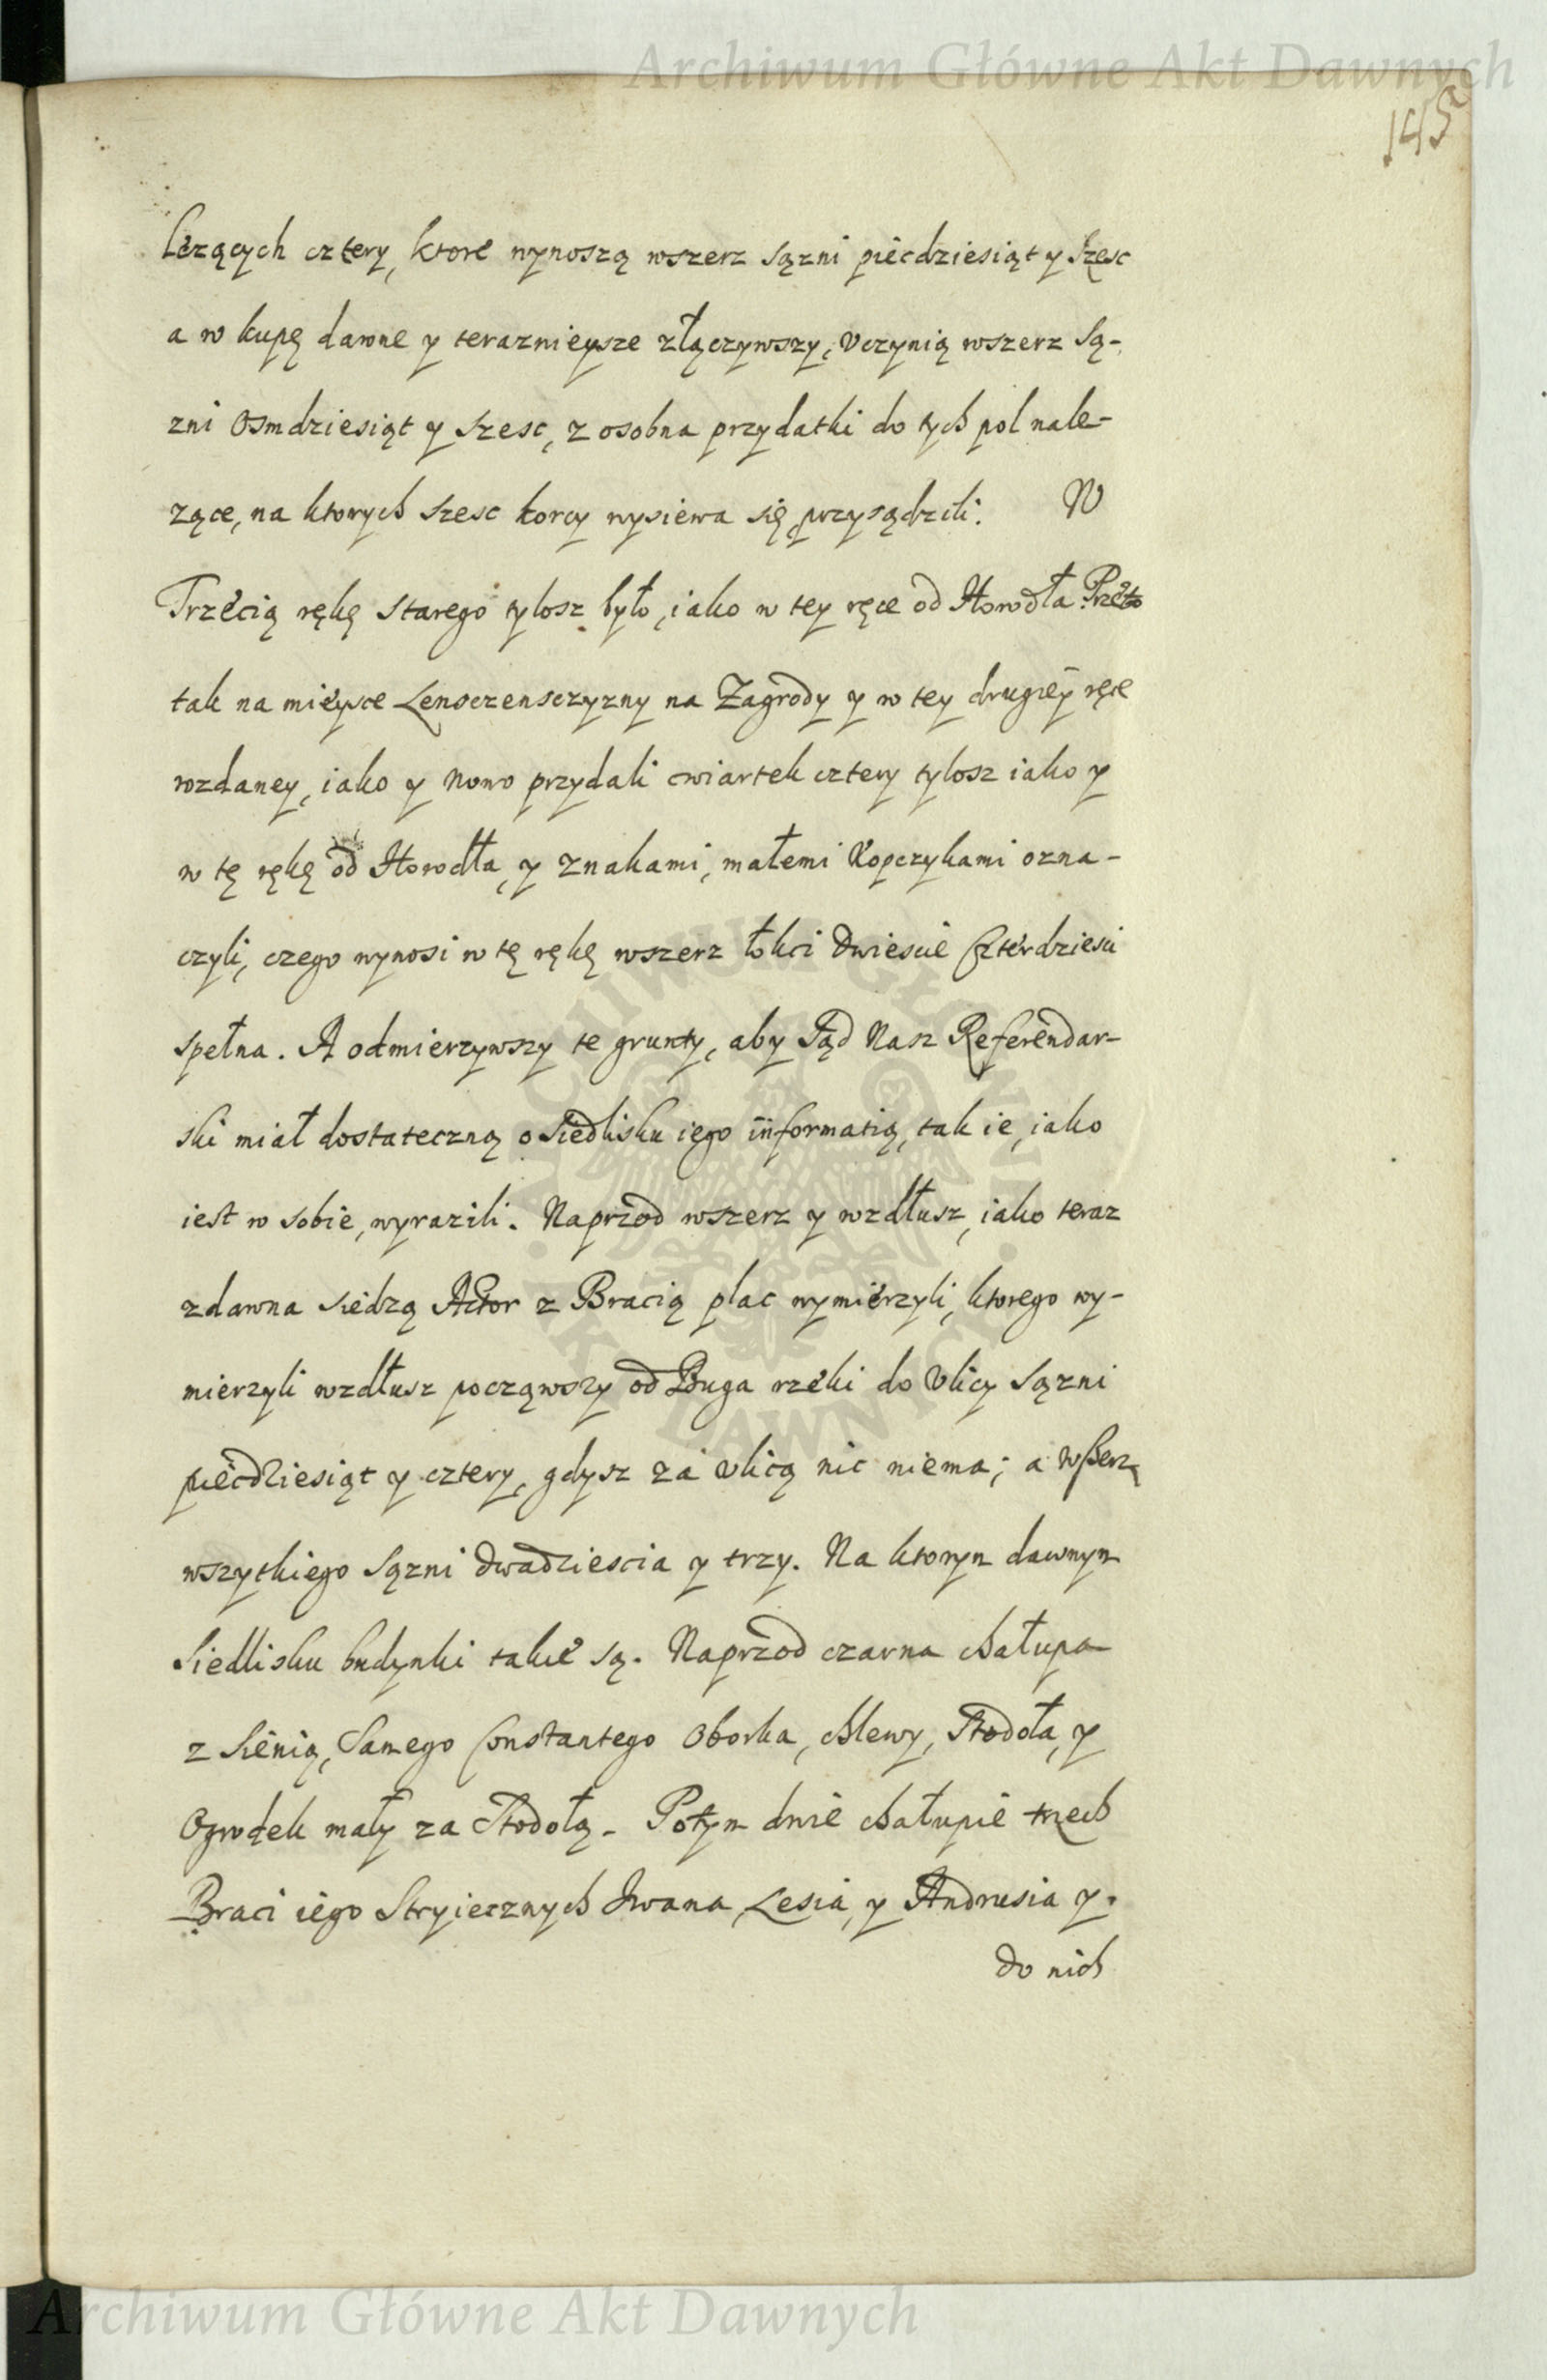 Archiwum Główne Akt Dawnych
145
leżących cztery, ktore wynoszą wszerz sązni piećdziesiąt y szesc
a w kupę dawne y teraznieysze złączywszy, Vczynią wszerz są-
zni Osmdziesiąt y szesc, z osobna przydatki do tych pol nale-
zące, na ktorych szesc korcy wysiewa się, przysądzili. W
Trzecią rękę starego tylosz było, iako w tey ręce od Horodła Przeto
tak na mieysce Lensczensczyzny na Zagrody y w tey drugiey ręce
wzdaney, iako y Nowo przydali cwiartek cztery tylosz iako y
w tę rękę od Horodła, y znakami, małemi Kopczykami ozna-
czyli, czego wynosi w tę rękę wszerz łokci Dwiescie Czterdziesci
spełna. A odmierzywszy te grunty, aby Sąd Nasz Referendar-
ski miał dostateczną o siedlisku iego informatią, tak ie, iako
iest w sobie, wyrazili. Naprzod wszerz y wzdłusz, iako teraz
zdawna siedzą Actor z Bracią plac wymierzyli, ktorego wy-
mierzyli wzdłusz począwszy od Buga rzeki do Vlicy sązni
piećdziesiąt y cztery, gdysz za Vlicą nic niema; a wszerz
wszytkiego sązni Dwadziescia y trzy. Na ktorym dawnym
siedlisku budynki takie są. Naprzod czarna chałupa
z sienią, Samego Constantego Oborka, chlewy, Stodoła, y
Ogrodek mały za Stodołą. Potym dwie chałupie trzech
Braci iego Stryiecznych Iwana, Lesia, y Andrusia y.
do nich
Archiwum Główne Akt Dawnych